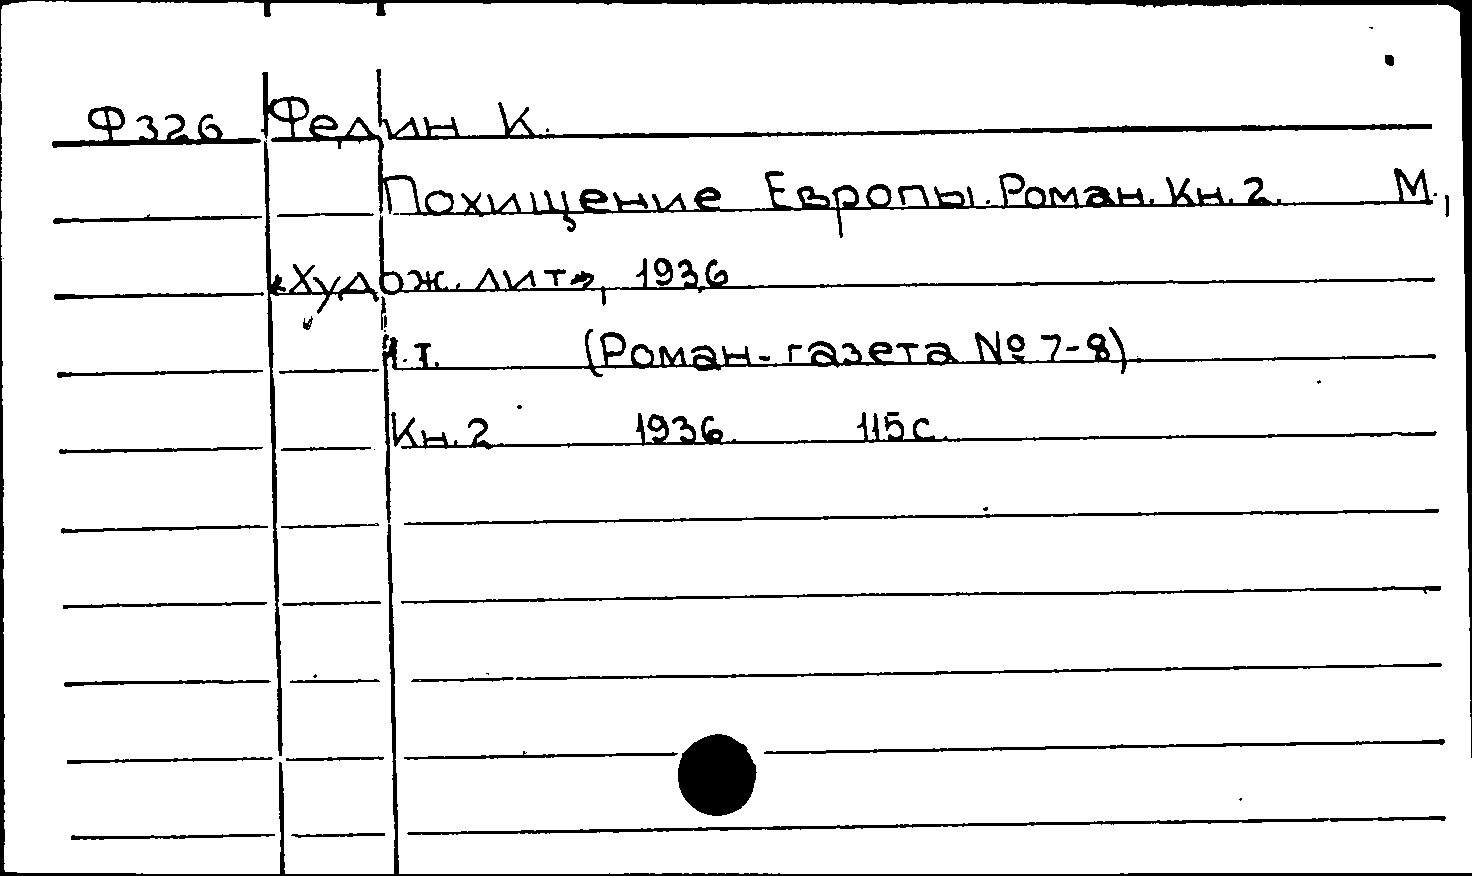 Ф326 Федин К.
Похищение Европы. Роман. Кн. 2. М.,
«Худож. лит», 1936
1.т. (Роман-газета № 7-8)
Кн. 2 1936. 115с.